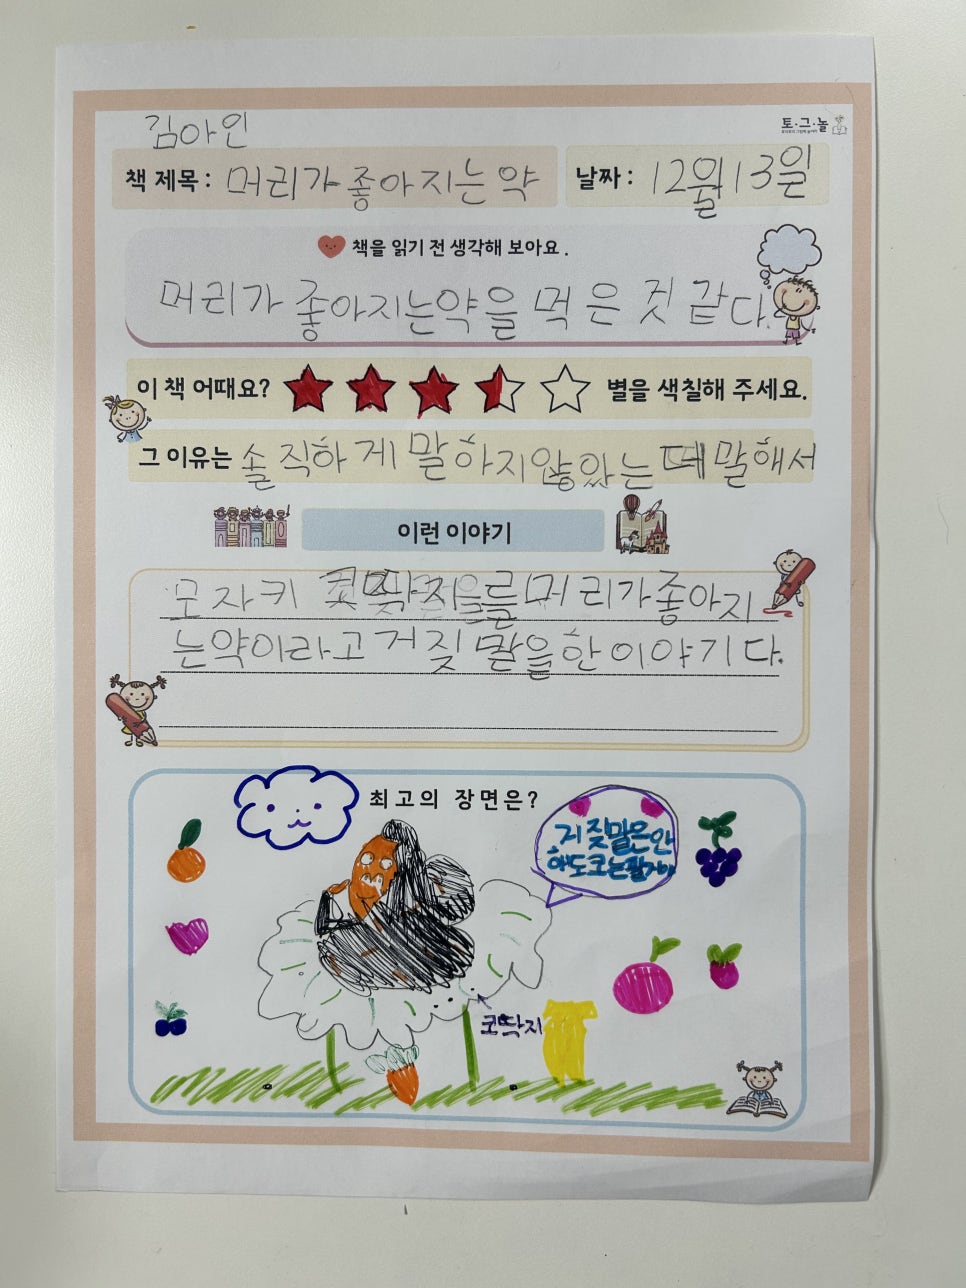 김아인
토·그·놀
책 제목: 머리가 좋아지는 약
날짜: 12월 13일
책을 읽기 전 생각해 보아요.
머리가 좋아지는약을 먹은 것 같다.
이 책 어때요? 별을 색칠해 주세요.
그 이유는 솔직하게 말하지않았는데 말해서
이런 이야기
모자키 코딱지를 머리가좋아지
는약이라고 거짖말을한이야기다.
최고의 장면은?
거짖말은안
해도 되는칠거야
코딱지